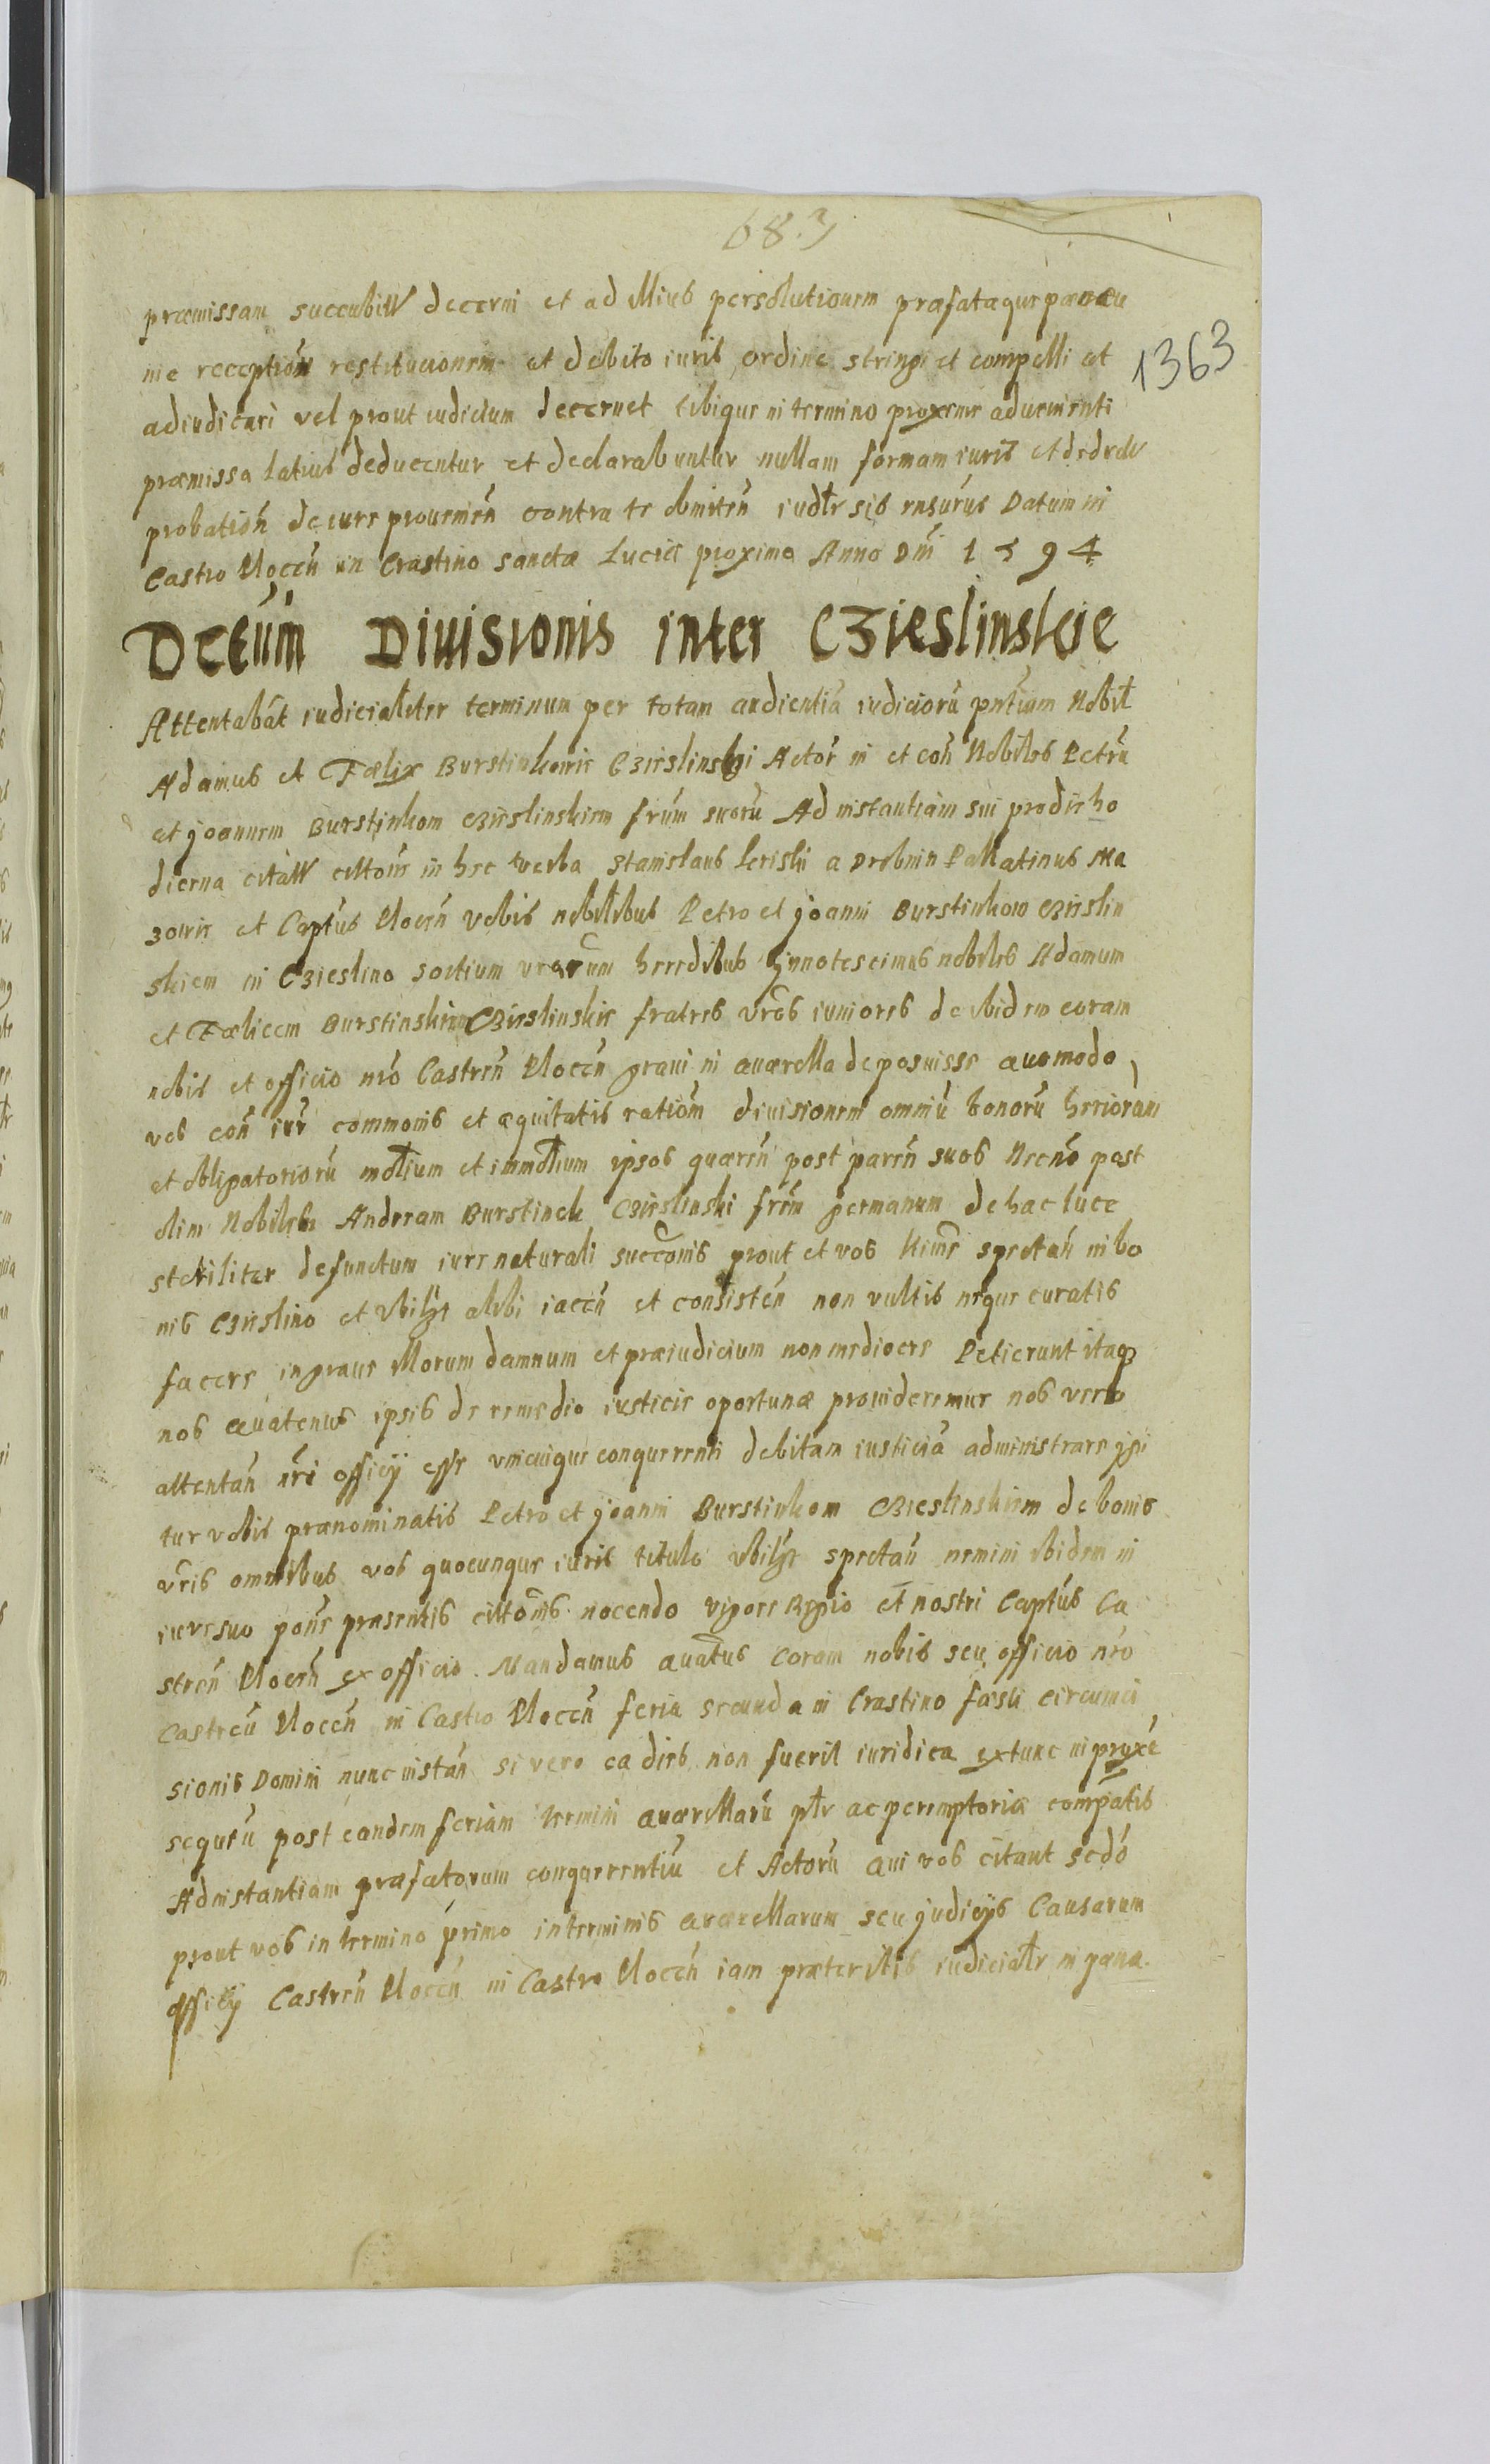 683
1363
præmissam succubitt decerni et ad illius persolutionem præfatæque pæcu
niæ reception restitucionem et debito iuris ordine stringi et compelli et
adiudicari vel prout iudicium decernet tibique in termino proxime aduenienti
præmissa latius deducentur et declarabuntur nullam formam iuris et de
probation de iure prouenien contra te obmitten iudlr sis rnsurus Datum in
Castro Plocen in Crastino sanctæ Luciæ proximo Anno Dni 1594
Dctum Diuisionis inter Czieslinskie
Attentabat iudicialiter terminum per totam audientiã iudiciorũ pntium Nobil
Adamus et Fælix Burstinkowie Czieslinski Actor in et con Nobiles Petrũ
et Joannem Burstinkom Czieslinskiem frum suorũ Ad instantiam sui pro die ho
dierna citatt cittois in hæc verba Stanislaus Kriski a Drobnin Pallatinus Ma
zouiæ et Captus Plocen vobis nobilibus Petro et Joanni Burstinkow Czieslin
skiem in Czieslino sortium vrarum hæredibus Jnnotescimus nobiles Adamum
et Fælicem Burstinskiem Czieslinskie fratres vros iuniores de ibidem coram
nobis et officio nro Castren Plocen graui in quærella deposuisse quomodo
vos con iur commonis et æquitatis ration diuisionem omniũ bonorũ hæriorum
et obligatoriorũ mobilium et immobilium ipsos quæren post paren suos Necno post
olim Nobilem Andream Burstinek Czieslinski frem germanum de hac luce
steriliter defunctum iure naturali succonis prout et vos simr spectan in bo
nis Czieslino et vbilzt alibi iacen et consisten non vultis neque curatis
facere in graue illorum damnum et præiudicium non mediocre Petierunt itaq
nos quatenus ipsis de remedio iusticiæ oportunæ prouideremur nos vero
attentan nri officij esse vnicuique conquerenti debitam iusticiã administrare igi
tur vobis prænominatis Petro et Joanni Burstinkom Czieslinskiem de bonis
vris omnibus vos quocunque iuris titulo vbilzt spectan nemini ibidem in
iure suo pons præsentis cittonis nocendo vigore Regio et nostri Captus Ca
stren Plocen ex officio Mandamus quatus coram nobis seu officio nro
Castren Plocen in Castro Plocen feria secunda in Crastino fæsti circumci
sionis Domini nunc instan si vero ea dies non fuerit iuridica extunc in proxe
sequtũ post eandem feriam termini quærellarũ ptr ac peremptoriæ compatis
Ad instantiam præfatorum conquerentiũ et Actorũ qui vos citant sedo
prout vos in termino primo in terminis quærellarum seu judicijs Causarum
officij Castren Plocen in Castro Plocen iam præteritis iudicialr in pæna